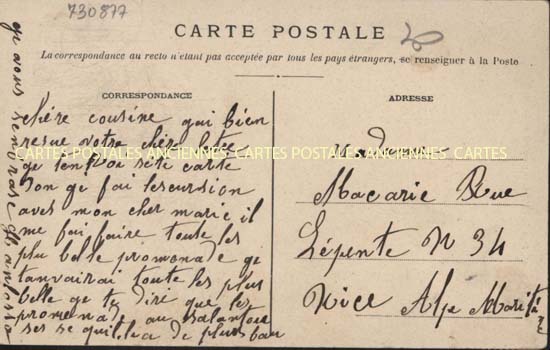 730877
CARTE POSTALE
La correspondance au recto n'étant pas acceptée par tous les pays étrangers, se renseigner à la Poste
CORRESPONDANCE
chère cousine gai bien
resue votre chèr
CARTES POSTALES ANCIENNES CARTES POSTALES ANCIENNES CARTES
ge ten voi sete carte
Don ge fai lescursion
aves mon cher marie il
me fai faire toute les
plu belle promonade ge
tanvairai toute les plus
belle ge te dire que les
promenade au
ses se quil de plus bau
ge vous
ADRESSE
Madame
Macarie Rue
Lépente N 34
Nice Alp Marit